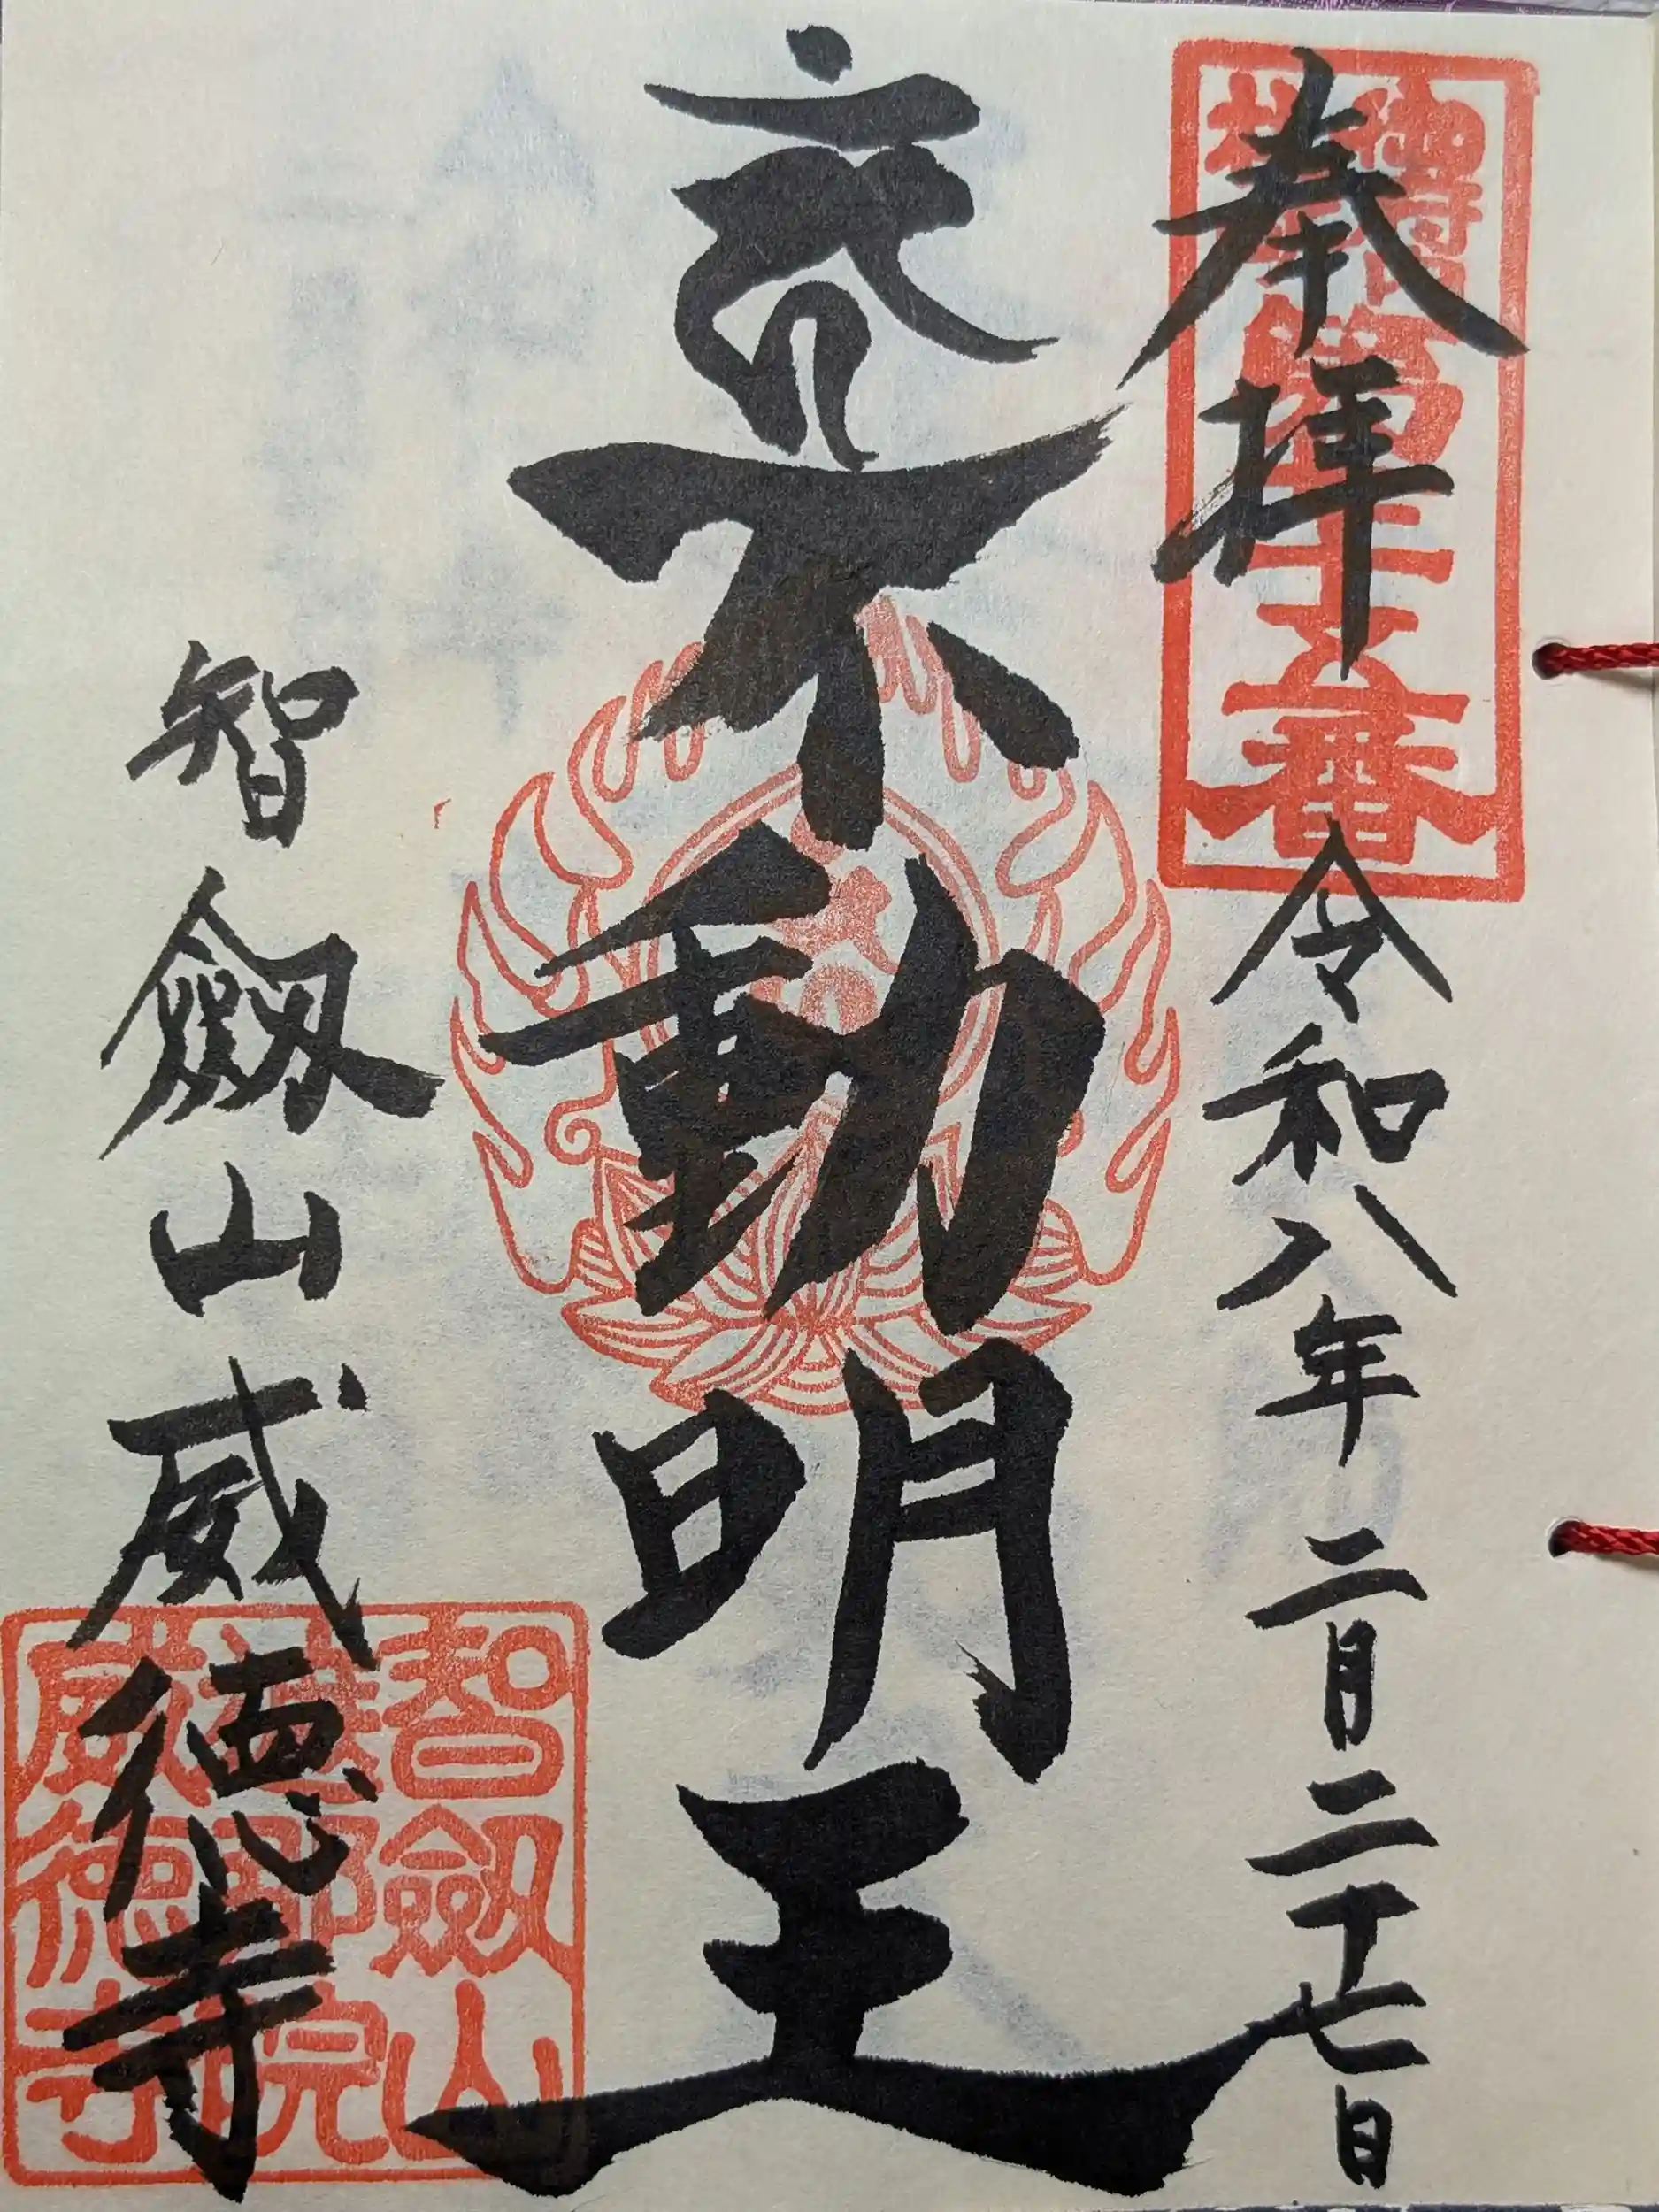 奉拝
令和八年二月二十七日
不動明王
智劔山威徳寺
十五番
智劔山
院
威徳寺